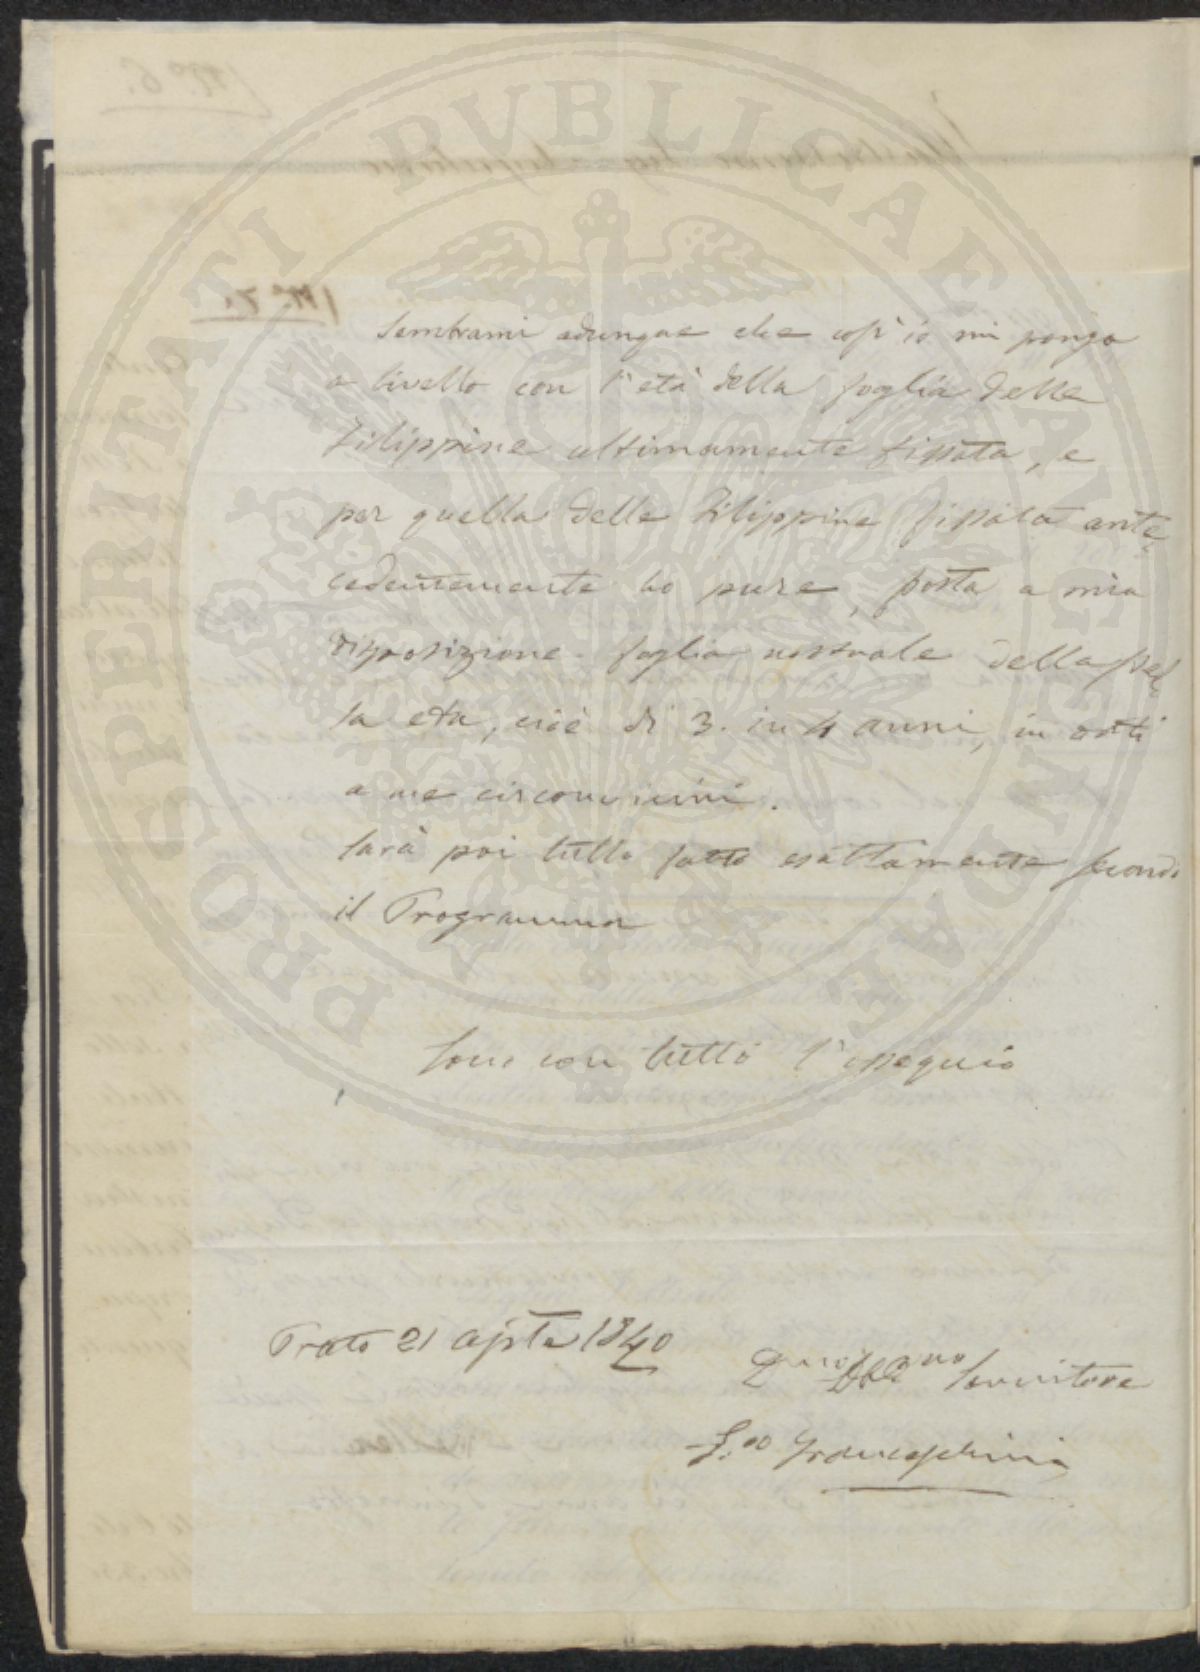 PROSPERITATI PVBLICAE AVGENDAE
Sembrami adunque che così io mi ponga
a livello con l'età della foglia delle
Filippine ultimamente fissata, e
per quella delle Filippine fissata ante,
cedentemente ho pure, posta a mia
disposizione foglia nostrale della stes,
sa età, cioè di 3. in 4 anni, in orti
a me circonvicini.
Sarà poi tutto fatto esattamente secondo
il Programma
Sono con tutto l'ossequio
Prato 21 Aprile 1840
Servitore
Franceschini